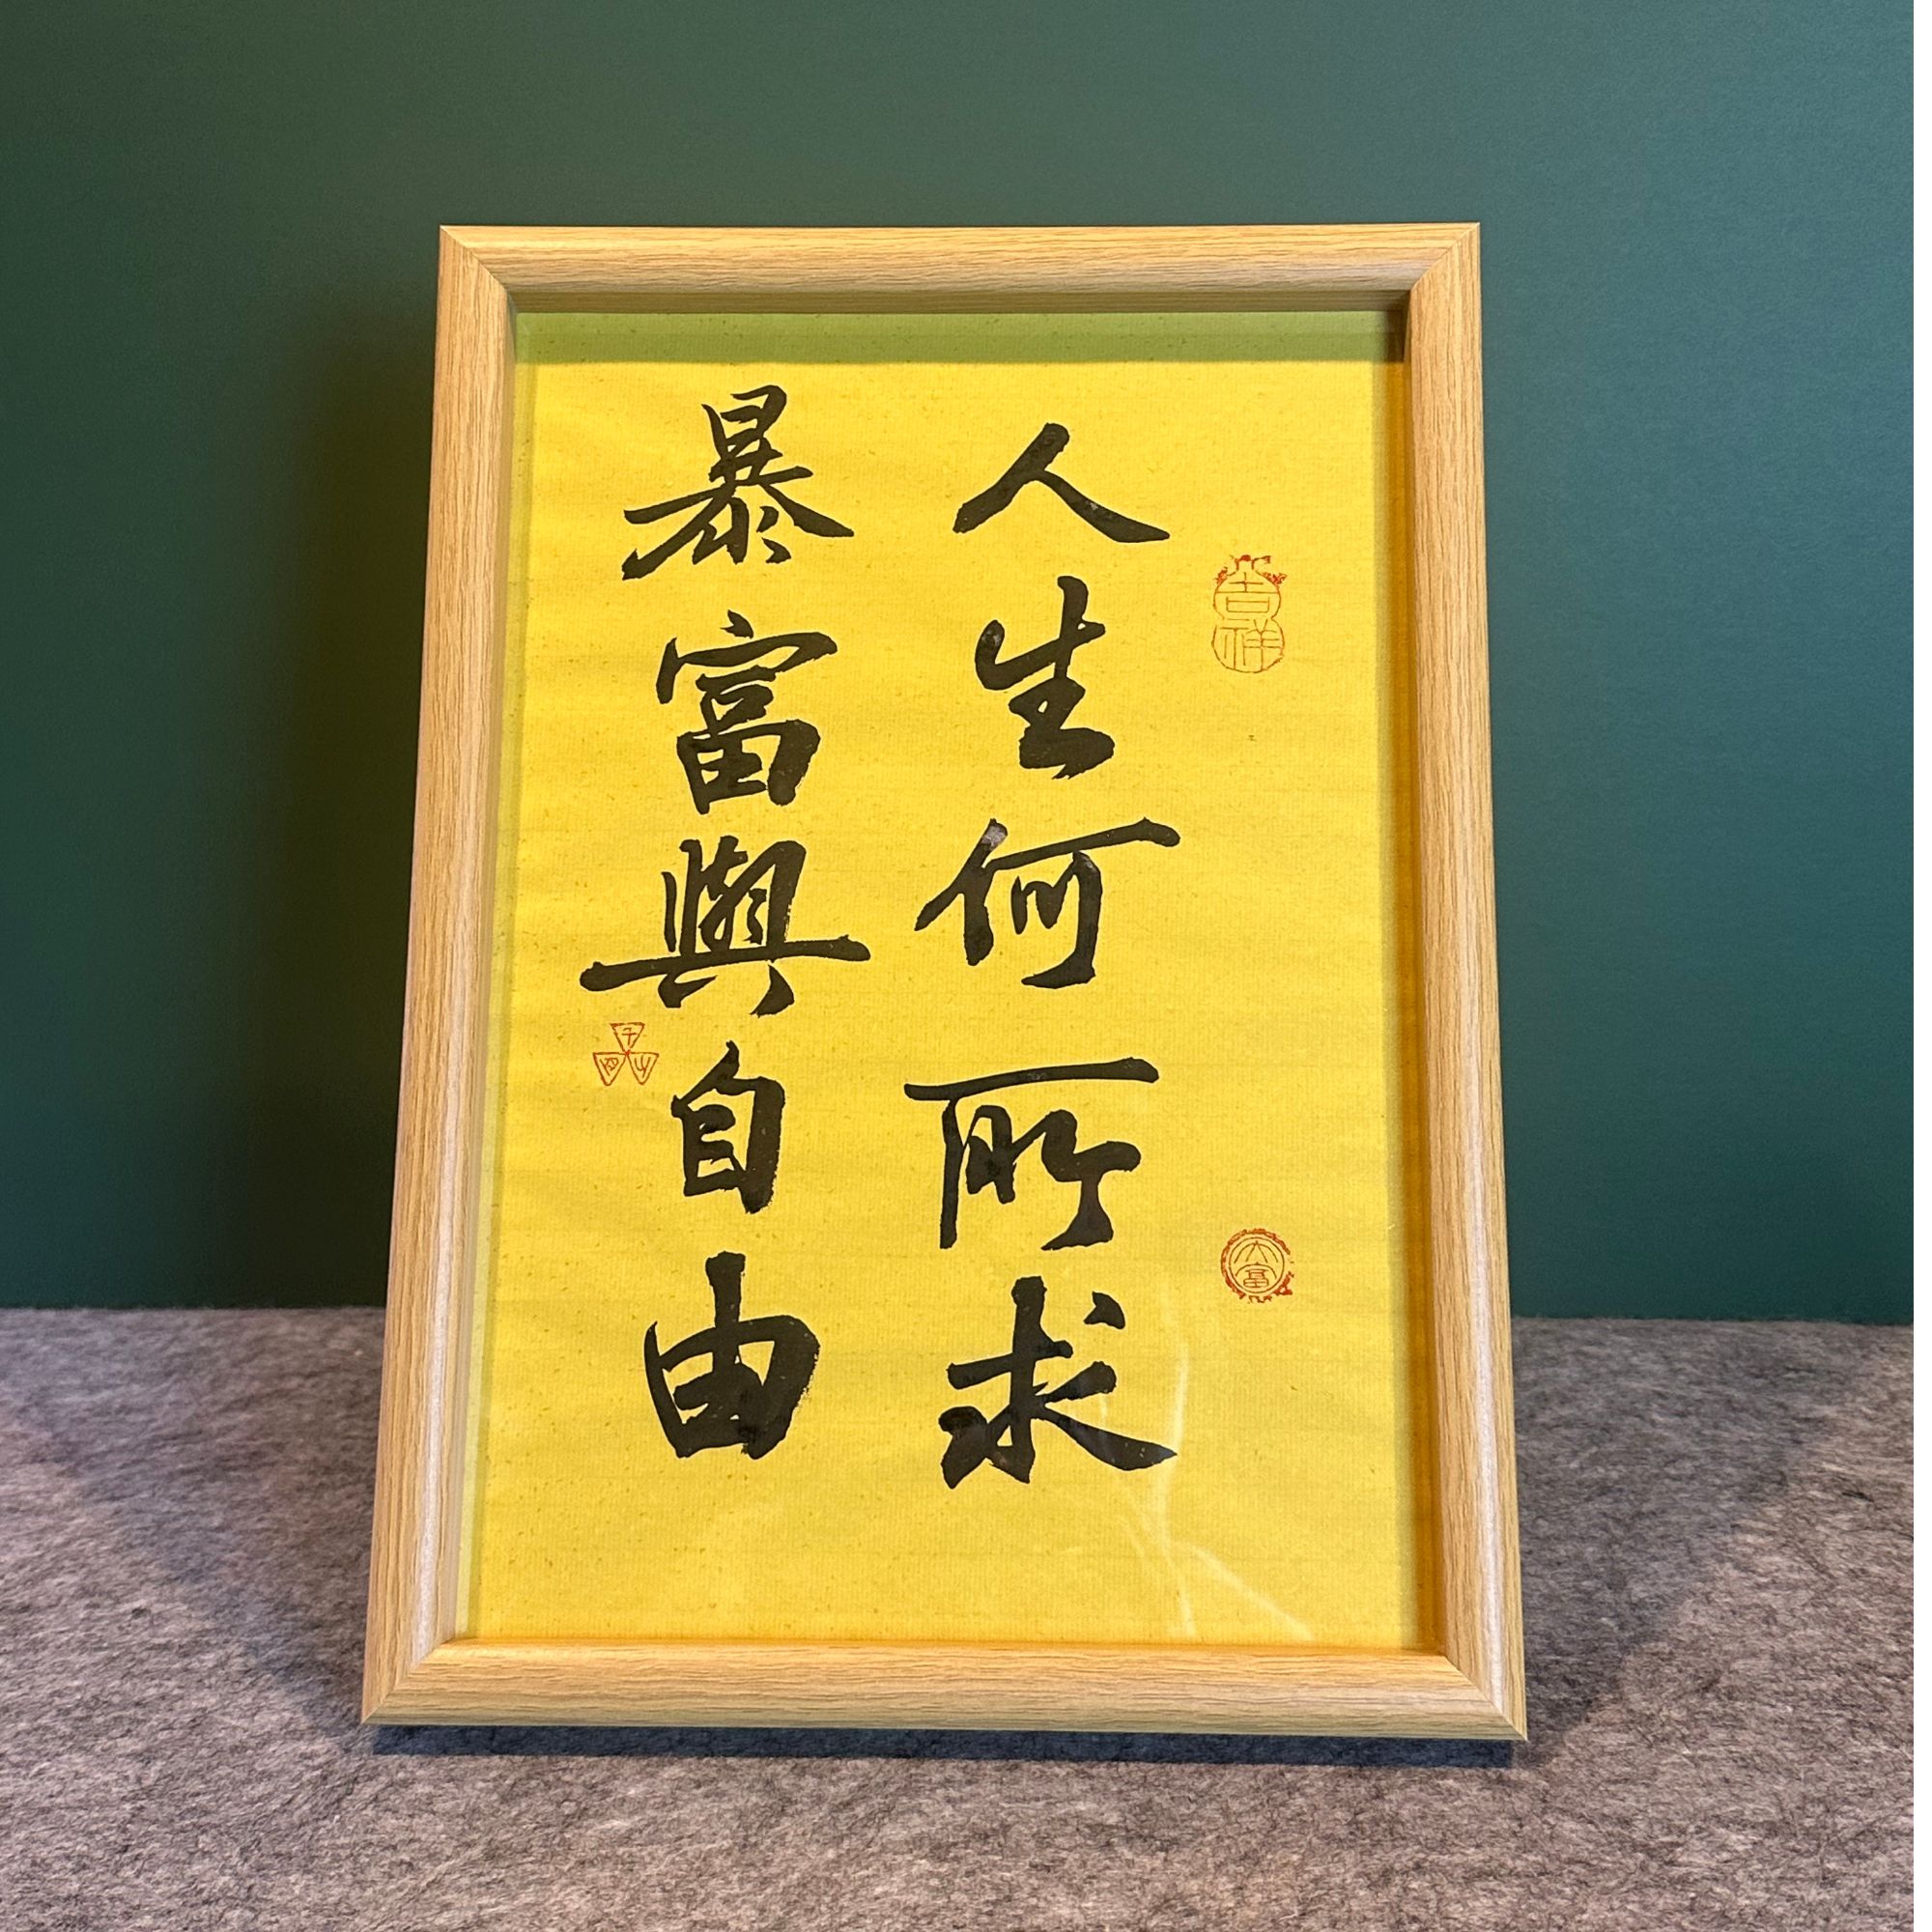 人生何所求
暴富與自由
吉祥
大富